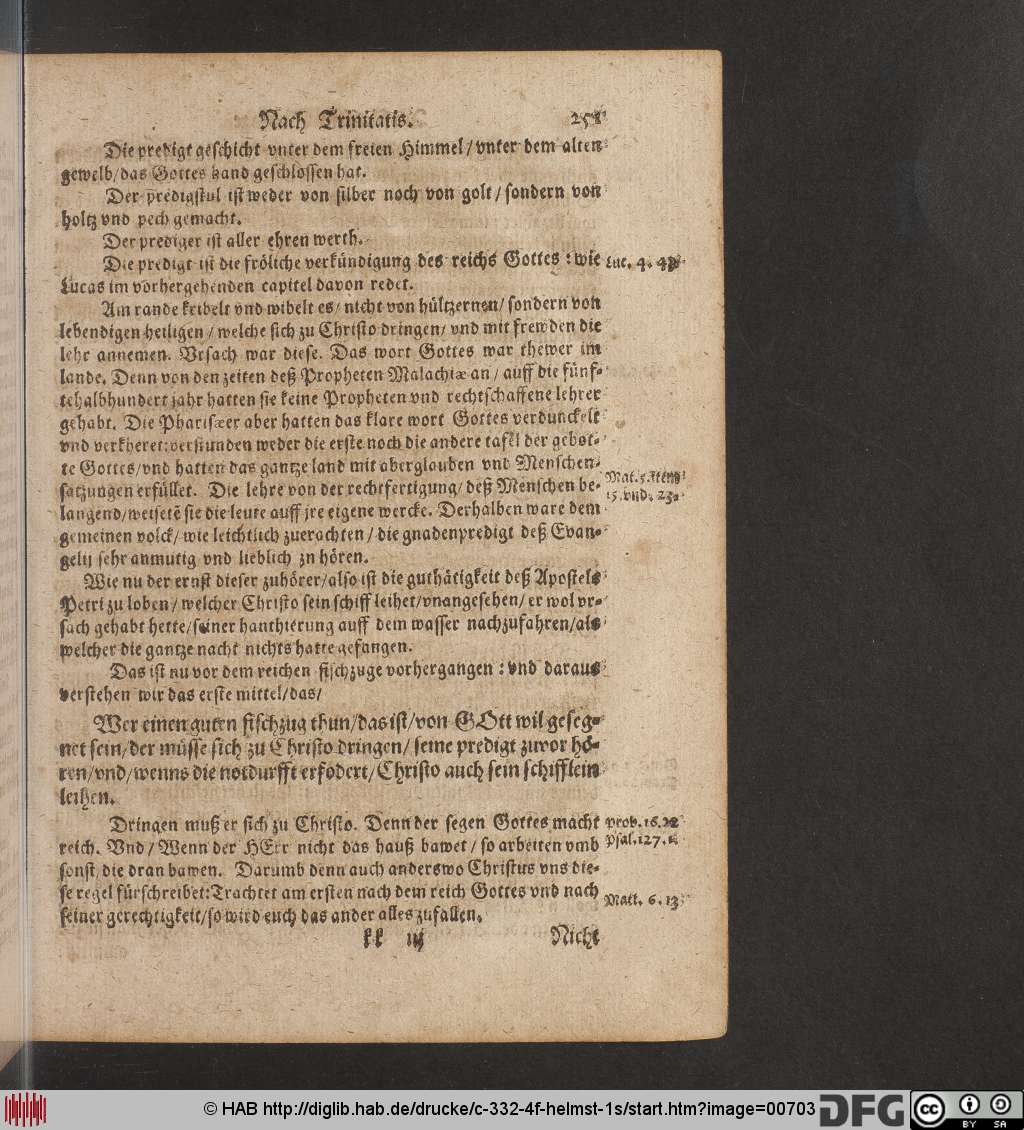 Nach Trinitatis. 251
Die predigt geschicht vnter dem freien Himmel/vnter dem alten
gewelb/das Gottes hand geschlossen hat.
Der predigstul ist weder von silber noch von golt/sondern von
holtz vnd pech gemacht.
Der prediger ist aller ehren werth.
Die predigt ist die fröliche verkündigung des reichs Gottes: wie
Luc. 4. 43.
Lucas im vorhergehenden capitel davon redet.
Am rande kribelt vnd wibelt es/nicht von hültzernen/sondern von
lebendigen heiligen/welche sich zu Christo dringen/vnd mit frewden die
lehr annemen. Vrsach war diese. Das wort Gottes war thewer im
lande. Denn von den zeiten deß Propheten Malachiæ an/auff die fünf-
tehalbhundert jahr hatten sie keine Propheten vnd rechtschaffene lehrer
gehabt. Die Phariseer aber hatten das klare wort Gottes verdunckelt
vnd verkheret: verstunden weder die erste noch die andere tafel der gebot-
te Gottes/vnd hatten das gantze land mit aberglauben vnd Menschen-
Mat. 5. item
satzungen erfüllet. Die lehre von der rechtfertigung/deß Menschen be-
15. vnd. 23.
langend/weisetē sie die leute auff jre eigene wercke. Derhalben ware dem
gemeinen volck/wie leichtlich zuerachten/die gnadenpredigt deß Evan-
gelij sehr anmutig vnd lieblich zu hören.
Wie nu der ernst dieser zuhörer/also ist die guthätigkeit deß Apostels
Petri zu loben/welcher Christo sein schiff leihet/vnangesehen/er wol vr-
sach gehabt hette/seiner hanthierung auff dem wasser nachzufahren/als
welcher die gantze nacht nichts hatte gefangen.
Das ist nu vor dem reichen fischzuge vorhergangen: vnd daraus
verstehen wir das erste mittel/das/
Wer einen guten fischzug thun/das ist/von GOtt wil geseg-
net sein/der müsse sich zu Christo dringen/seine predigt zuvor hö-
ren/vnd/wenns die notdurfft erfodert/Christo auch sein schifflein
leihen.
Dringen muß er sich zu Christo. Denn der segen Gottes macht
prob. 16. 22
reich. Vnd/Wenn der HErr nicht das hauß bawet/so arbeiten vmb
Psal. 127. 1.
sonst, die dran bawen. Darumb denn auch anderswo Christus vns die-
se regel fürschreibet: Trachtet am ersten nach dem reich Gottes vnd nach
Matt. 6. 13.
seiner gerechtigkeit/so wird euch das ander alles zufallen.
kk iij Nicht
© HAB http://diglib.hab.de/drucke/c-332-4f-helmst-1s/start.htm?image=00703
DFG
cc BY SA